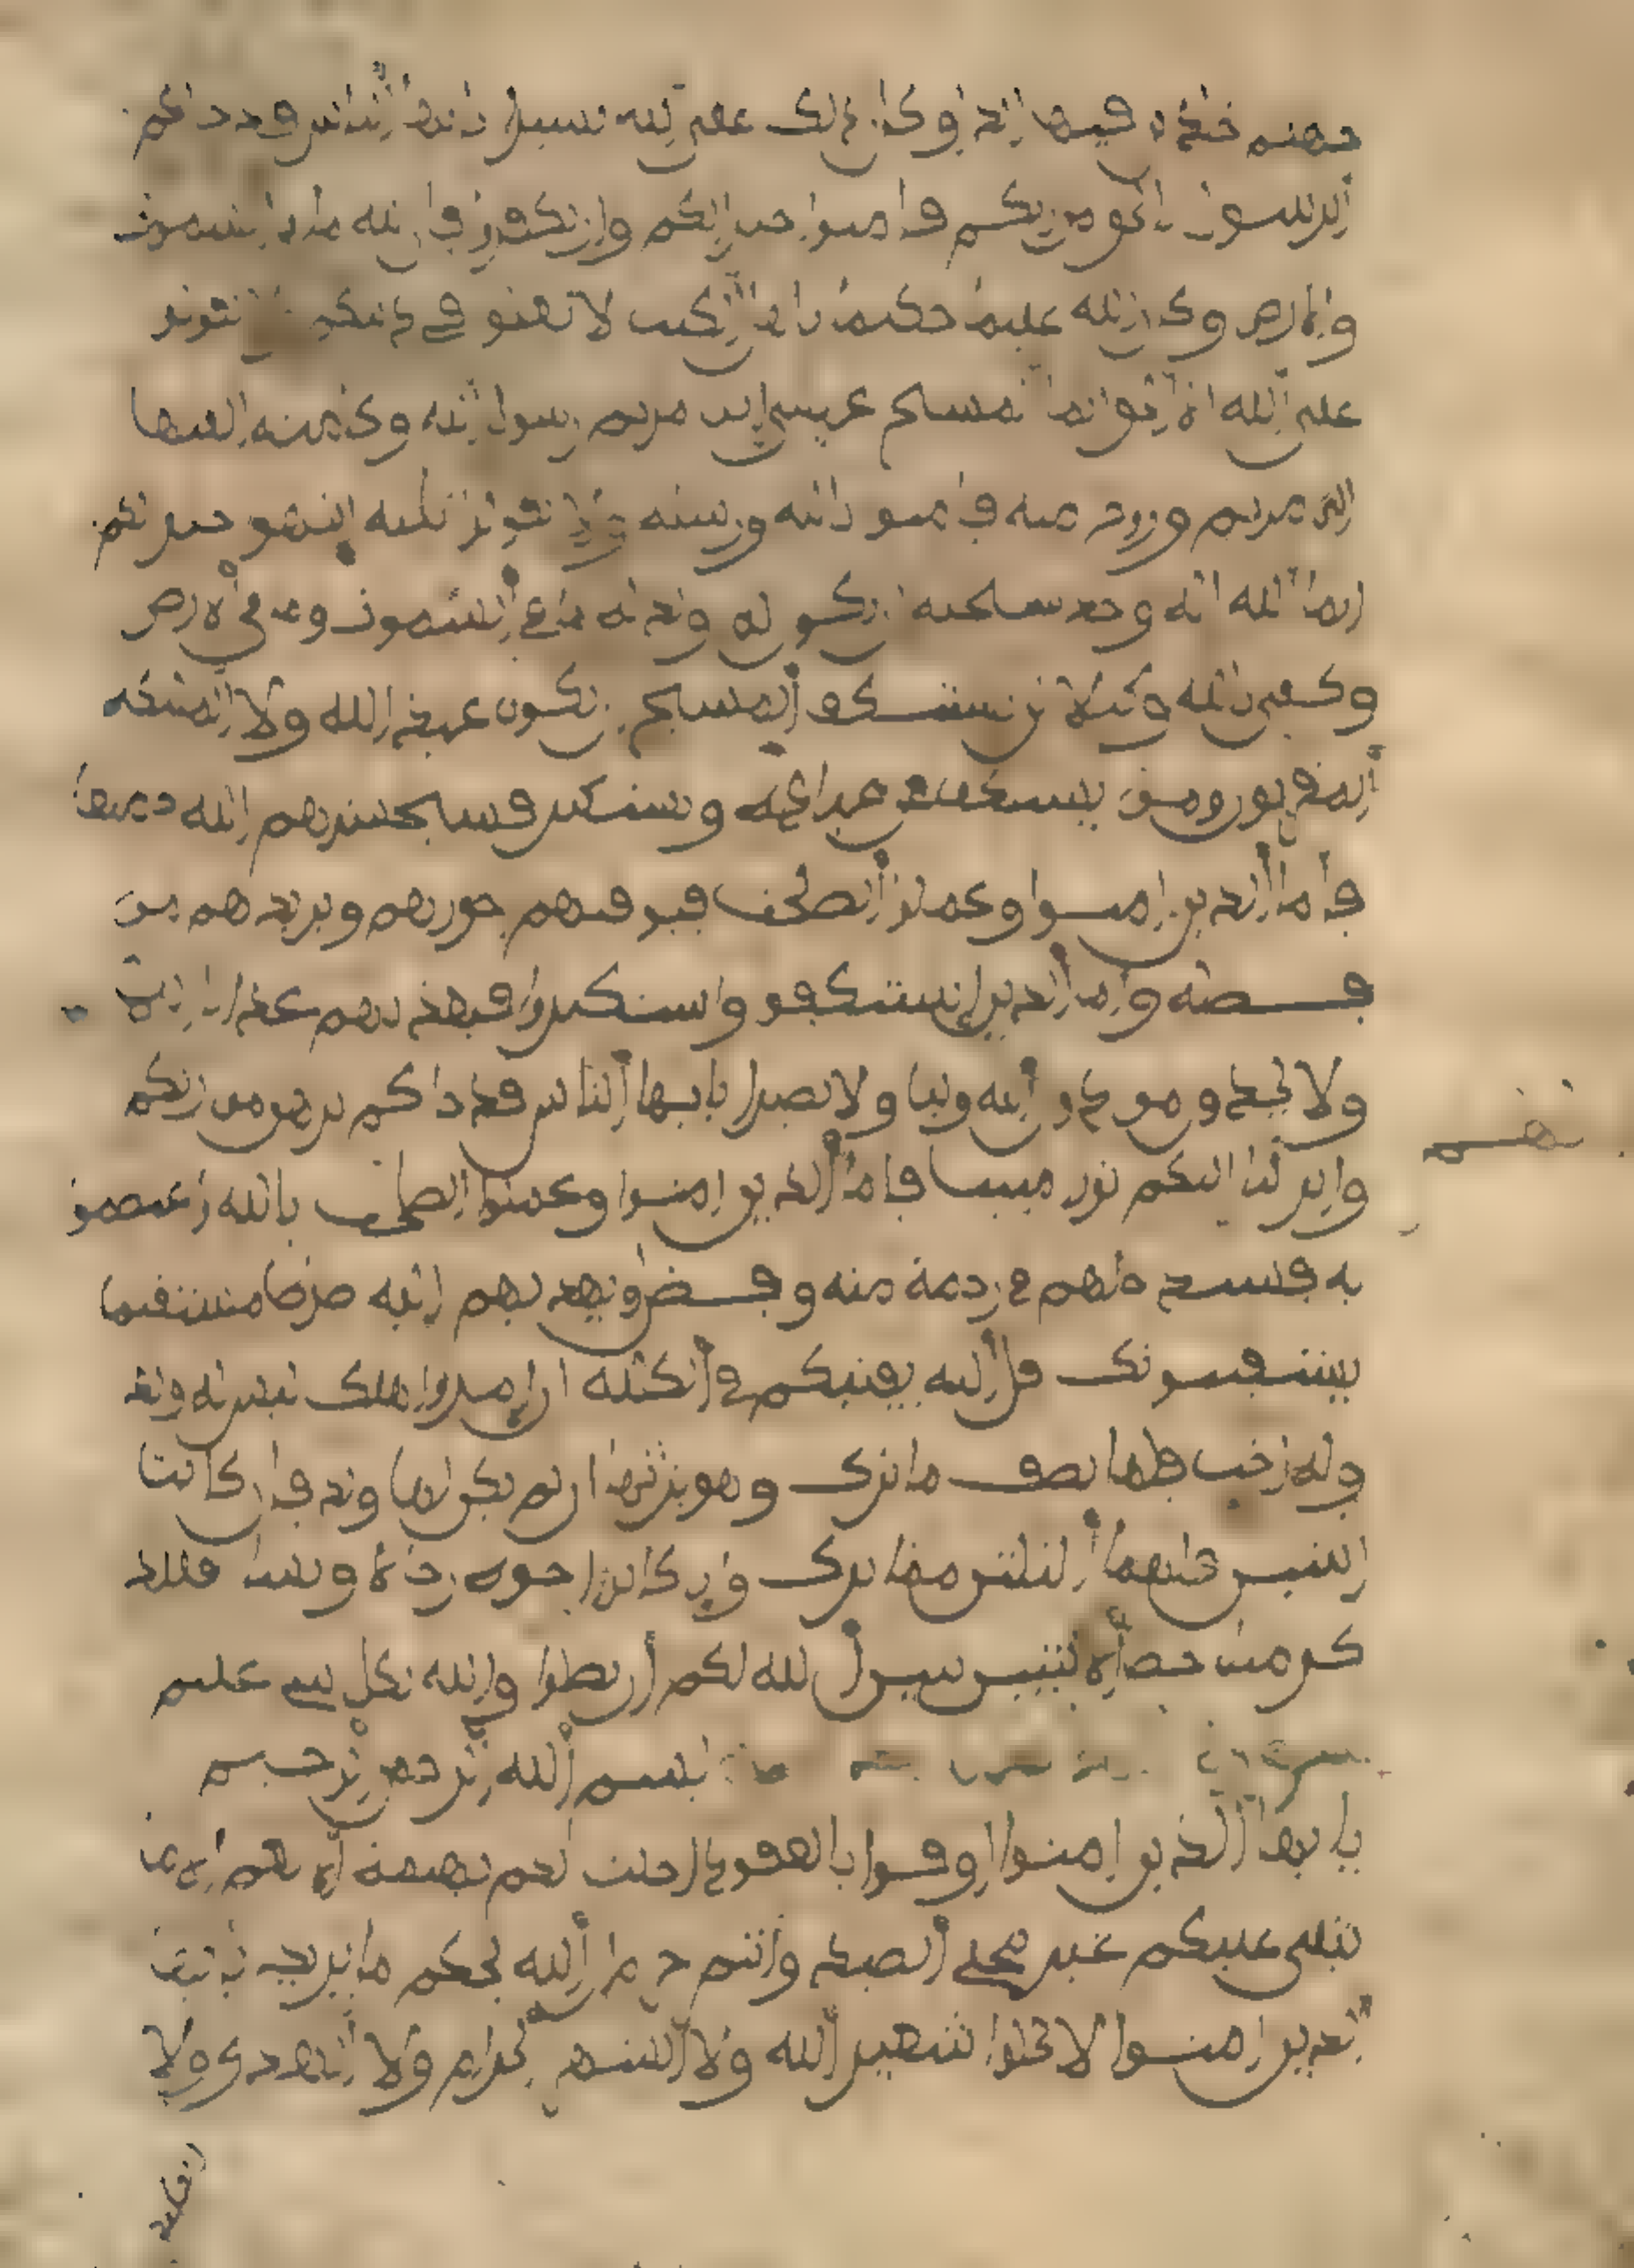 جهنم خلدين فيها أبدا وكان ذلك على الله يسيرا يايها الناس قد جاكم
الرسول بالحق من ربكم فامنوا خيرا لكم وان تكفروا فان لله ما في السموت
والارض وكان الله عليما حكيما ياهل الكتب لا تغلوا في دينكم ولا تقولوا
على الله الا الحق انما المسيح عيسى ابن مريم رسول الله وكلمته القيها
الى مريم وروح منه فامنوا بالله ورسله ولا تقولوا ثلثة انتهوا خيرا لكم
انما الله اله وحد سبحنه ان يكون له ولد له ما في السموت وما في الارض
وكفى بالله وكيلا لن يستنكف المسيح ان يكون عبدا لله ولا الملئكة
المقربون ومن يستنكف عن عبادته ويستكبر فسيحشرهم اليه جميعا
فاما الذين امنوا وعملوا الصلحت فيوفيهم اجورهم ويزيدهم من
فضله واما الذين استنكفوا واستكبروا فيعذبهم عذابا اليما
ولا يجدون من دون الله وليا ولا نصيرا يايها الناس قد جاكم برهن من ربكم
وانزلنا اليكم نورا مبينا فاما الذين امنوا وعملوا الصلحت بالله واعتصموا
به فسيدخلهم في رحمة منه وفضل ويهديهم اليه صرطا مستقيما
يستفتونك قل الله يفتيكم في الكللة ان امروا هلك ليس له ولد
وله اخت فلها نصف ما ترك وهو يرثها ان لم يكن لها ولد فان كانتا
اثنتين فلهما الثلثن مما ترك وان كانوا اخوة رجالا ونسا فللذ
كر مثل حظ الانثيين يبين الله لكم ان تضلوا والله بكل شي عليم
بسم الله الرحمن الرحيم
يايها الذين امنوا اوفوا بالعقود احلت لكم بهيمة الانعم الا ما
يتلى عليكم غير محلي الصيد وانتم حرم ان الله يحكم ما يريد يايها
الذين امنوا لا تحلوا شعير الله ولا الشهر الحرام ولا الهدي ولا